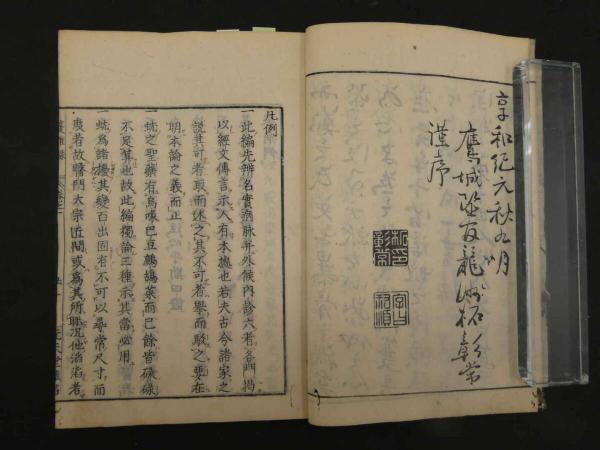 享和紀元秋九月
舊城
龍洲柘彰常
謹序
凡例
一此編先辨名實病脉并外候内診六者各門揭
以經文傳言示人有本據也若夫古今諸家之
說其可者取而述之其不可者舉而駁之要在
明本論之義而正
一蚘之聖藥有烏喙巴豆鷓鴣菜而已餘皆碌碌
不足算也故此編獨論三種示其當必用
一蚘爲諸擾其變百出固有不可以尋常尺寸而
度者故醫門大宗匠間或爲其所眩況他滔滔者